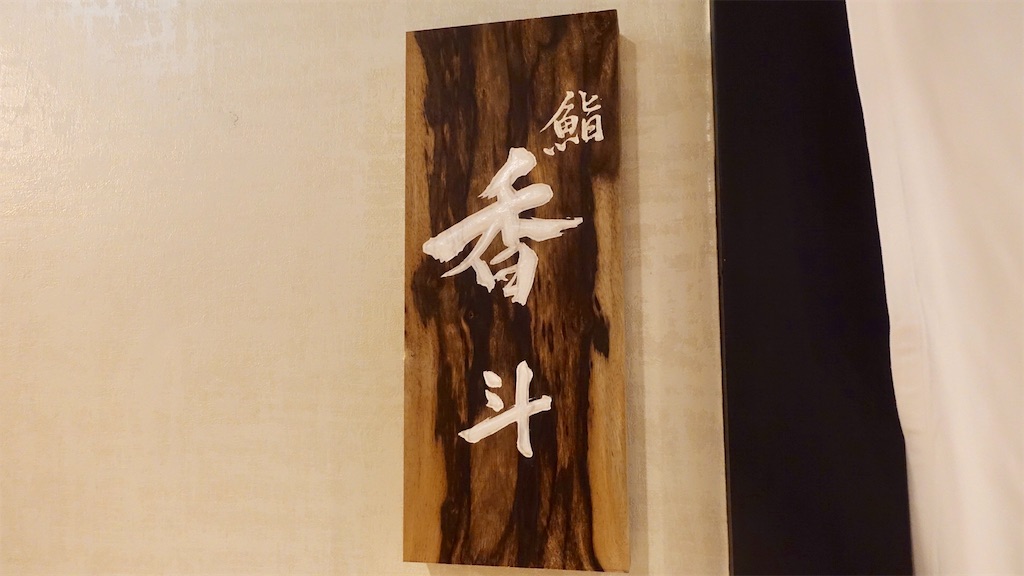 鮨
香斗